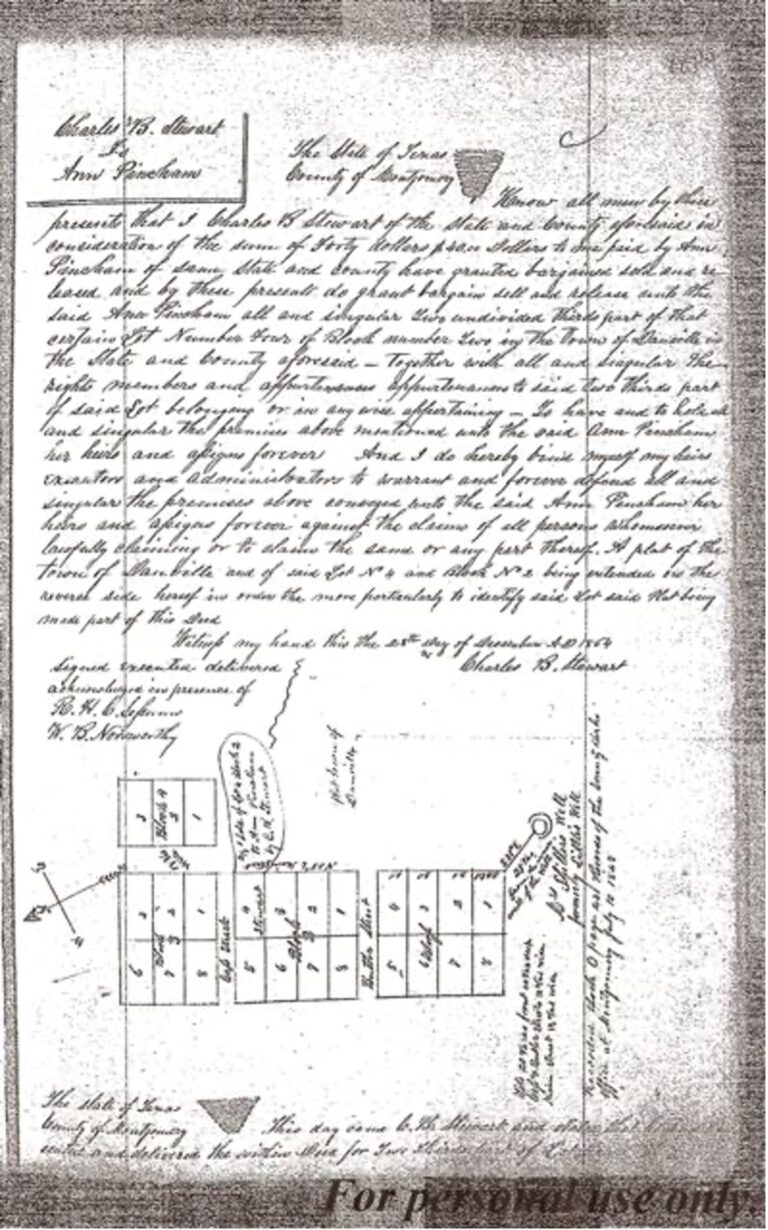 Charles B. Stewart
To
Ann Pincham
The State of Texas
County of Montgomery
Know all men by these
presents that I Charles B Stewart of the State and County aforesaid in
consideration of the sum of Forty dollars Dollars to me paid by Ann
Pincham of same State and county have granted bargained sold and re
leased and by these presents do grant bargain sell and release unto the
said Ann Pincham all and singular Two undivided thirds part of that
certain Lot Number Four of Block number Two in the Town of Danville in
the State and County aforesaid — Together with all and singular the
rights members and appurtenances to said two thirds part
of said Lot belonging or in any wise appertaining — To have and to hold all
and singular the premises above mentioned unto the said Ann Pincham
her heirs and assigns forever And I do hereby bind myself my heirs
executors and administrators to warrant and forever defend all and
singular the premises above conveyed unto the said Ann Pincham her
heirs and assigns forever against the claims of all persons whomsoever
lawfully claiming or to claim the same or any part thereof. A plat of the
town of Danville and of said Lot No 4 and Block No 2 being extended on the
reverse side hereof in order the more particularly to identify said Lot said Plat being
made part of this Deed
Witness my hand this the 28th day of December AD 1854
Charles B. Stewart
Signed executed delivered
acknowledged in presence of
R. H. C.
W. B. Norsworthy
Plat town of
Danville
Block 4
3 2 1
Main Street
3 2 1
Block 3
6 7 8
Cass Street
4 3 2 1
Stewart
Block 2
5 6 7 8
Butler Street
4 3 2 1
Block
5 6 7 8
Spillers Well
Well
Recorded Book O pages
office at Montgomery July 10
The State of Texas
County of Montgomery
This day came C. B. Stewart and
and delivered the within Deed for Two Thirds part of Lot
For personal use only.